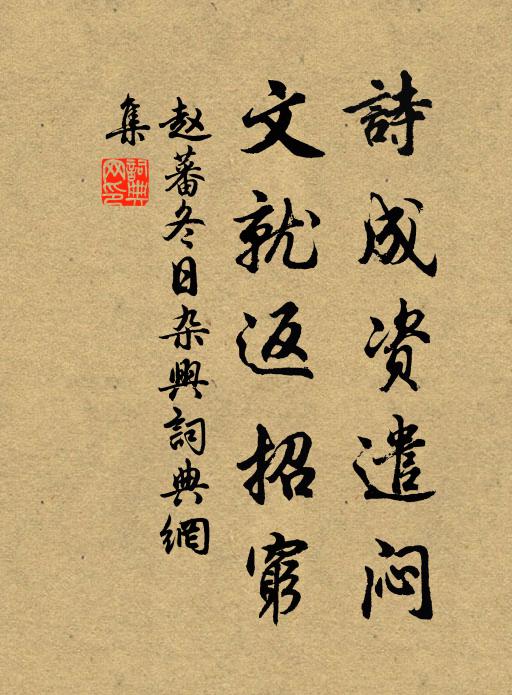 詩成资遣闷
文就返招窮
赵蕃冬日杂興詞典網
集
詞典网印